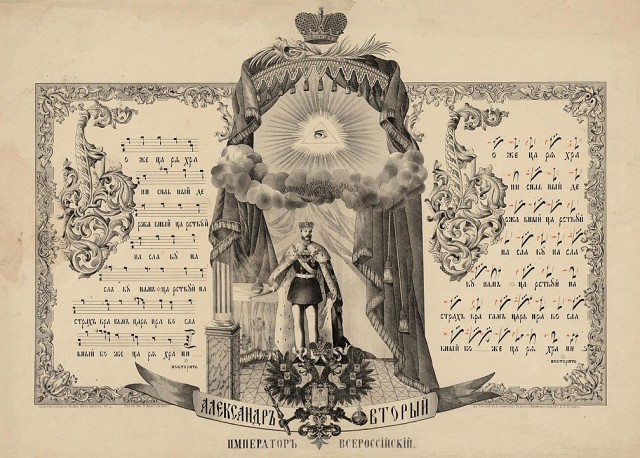 Б О ЖЕ ЦА РѦ ХРА
НИ СИЛЬ НЫЙ ДЕ
РЖА ВНЫЙ ЦА РСТВУЙ
НА СЛА ВУ НА
СЛА ВУ НАМЪ ЦА РСТВУЙ НА
СТРАХЪ ВРА ГАМЪ ЦАРЬ ПРА ВО СЛА
ВНЫЙ БО ЖЕ ЦА РѦ ХРА НИ
повторить
Б О ЖЕ ЦА РѦ ХРА
НИ СИЛЬ НЫЙ ДЕ
РЖА ВНЫЙ ЦА РСТВУЙ
НА СЛА ВУ НА СЛА
ВУ НАМЪ ЦА РСТВУЙ НА
СТРАХЪ ВРА ГАМЪ ЦАРЬ ПРА ВО СЛА
ВНЫЙ БО ЖЕ ЦА РѦ ХРА НИ
повторить
АЛЕКСАНДРЪ ВТОРЫЙ
ИМПЕРАТОРЪ ВСЕРОССІЙСКІЙ.